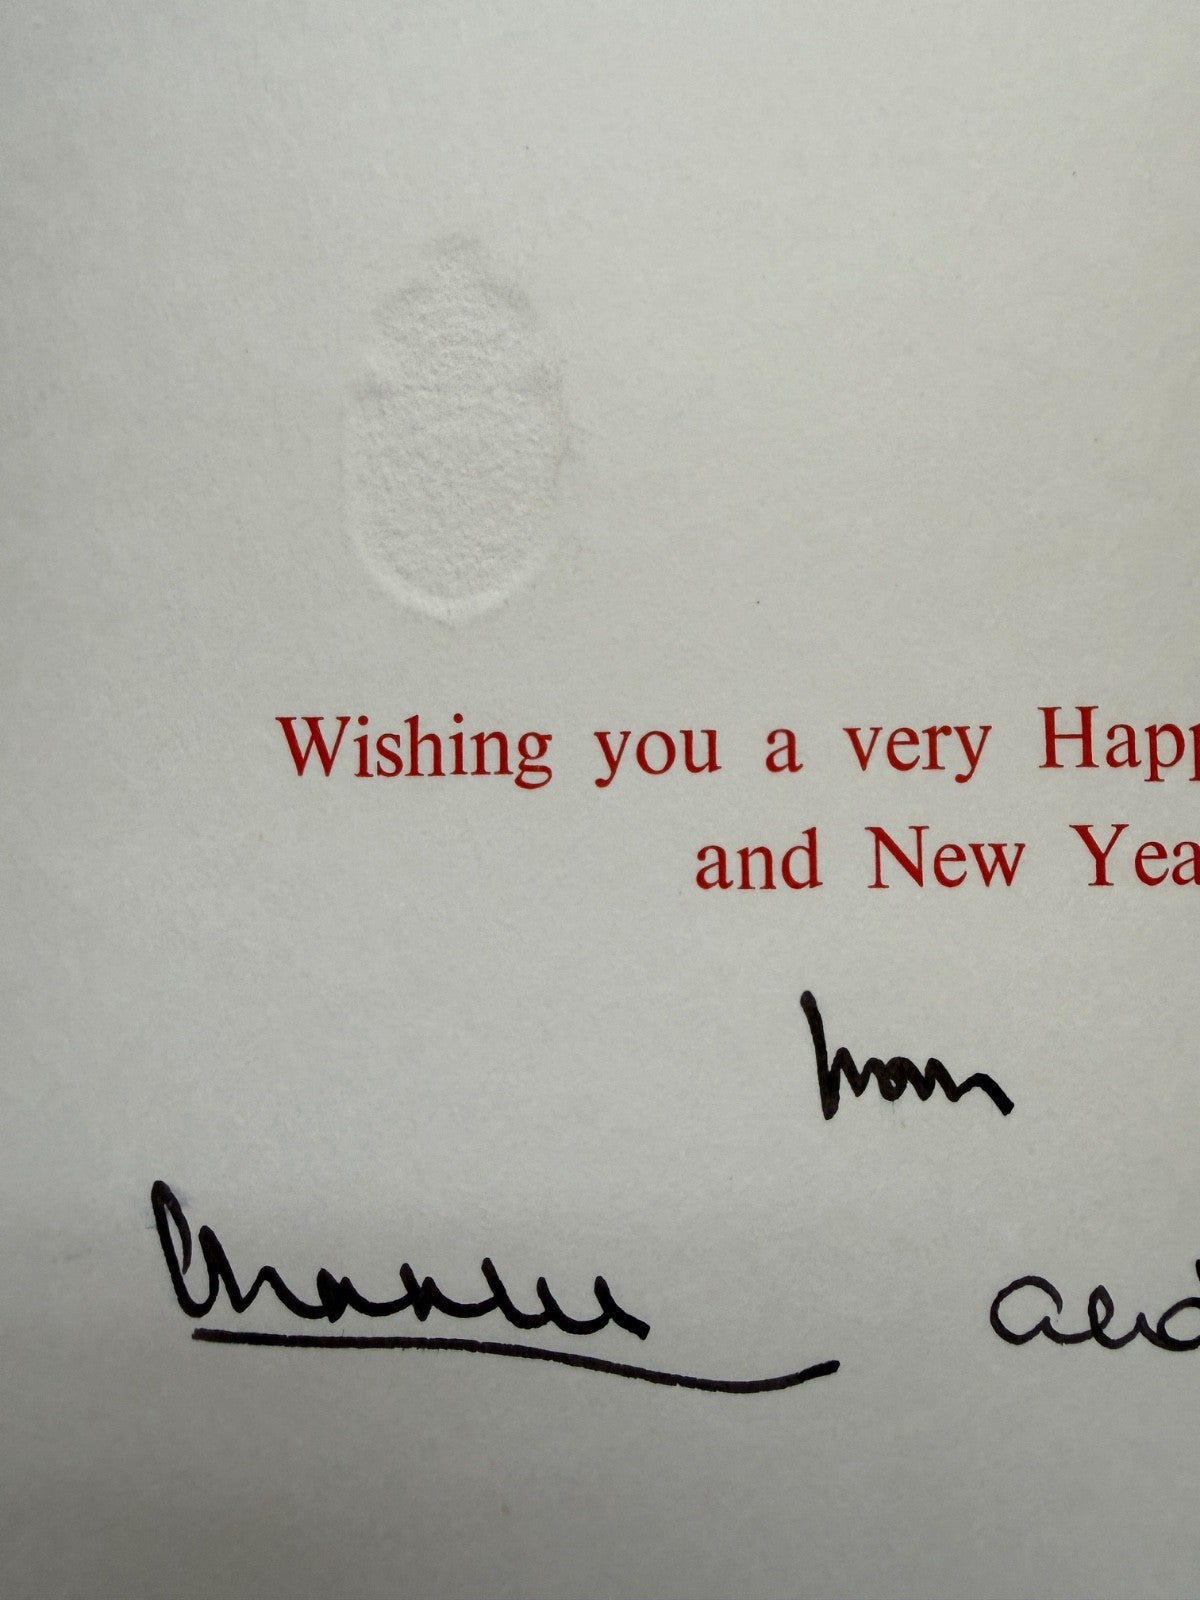 Wishing you a very Happ
and New Yea
from
Charles and